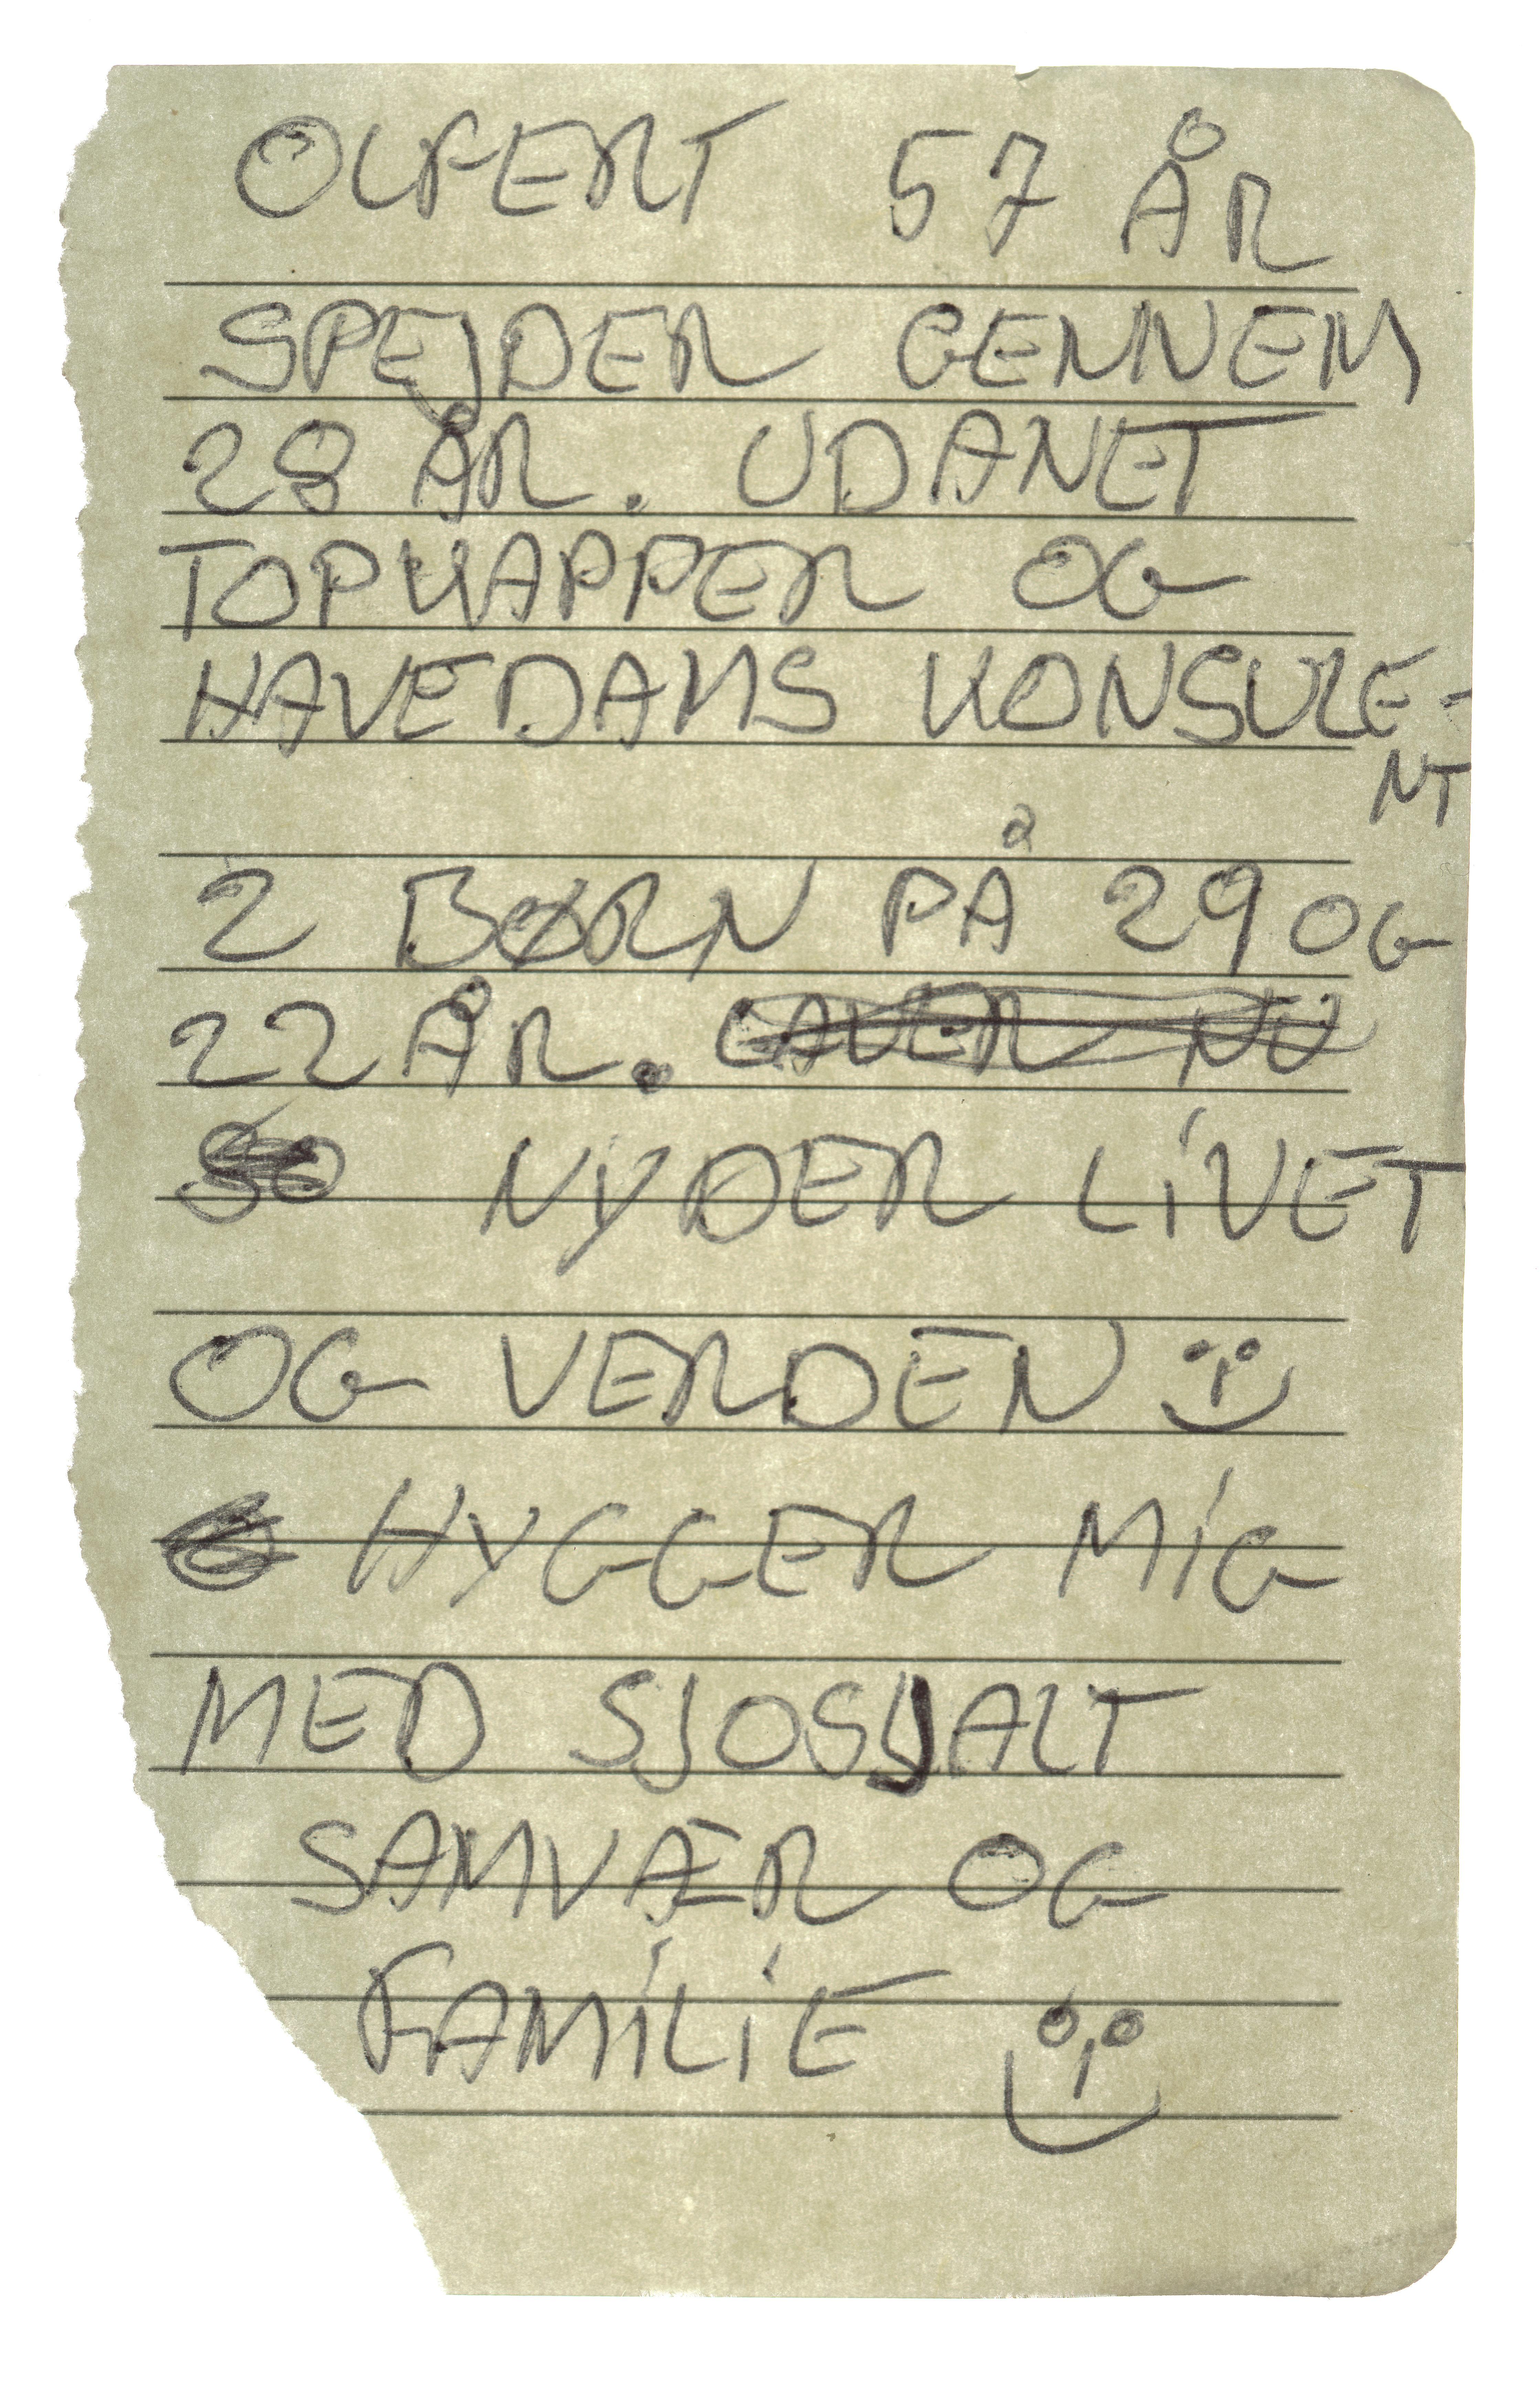 OLFERT 57 ÅR
SPEJDER GENNEM
28 ÅR. UDANET
TOPKAPPER OG
HAVEDAMS KONSULE-
NT
2 BØRN PÅ 29 OG
22 ÅR. LAVER NU
NYDER LIVET
OG VERDEN
HYGGER MIG
MED SJOSJALT
SAMVÆR OG
FAMILIE